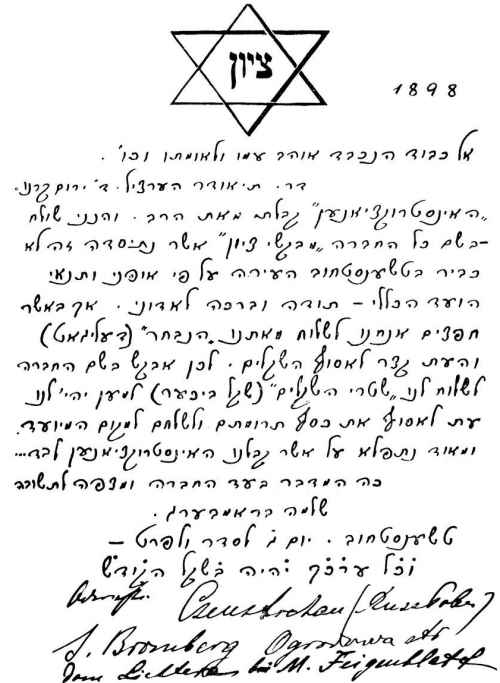 ציון
1898
אל כבוד הנכבד אוהב עמו ולאומתו וכו'.
דר. תיאודר הערציל. ד' ירום קרנו.
„האינסטרוקציאנען" קבלתי מאת הרב. והנני שולח
בשם כל החברה „מבקשי ציון" אשר נתיסדה זה לא-
כביר בטשענסטחוב העירה על פי אופני ותנאי
הועד הכללי – תודה וברכה לאדוני. אך באשר
חפצים אנחנו לשלוח מאתנו „הנבחר" (דעליגאט)
והעת קצר לאסוף השקלים. לכן אבקש בשם החברה
לשלוח לנו „שטרי השקלים" (שקל ביכער) למען יהי' לנו
עת לאסוף את כסף תרומתם ולשלחם למקום המיועד.
ומאוד נתפלא על אשר קבלנו האינסטרוקציאנען לבד...
כה המדבר בעד החברה ומצפה לתשובה
שלמה בראמבערג.
טשענסטחוב. יום ג' לסדר ולפרט –
וכל ערכך יהיה בשקל הקודש
Czenstochau (Russ. Polen)
S. Bromberg Ogrodowa str
Dom Lichter bei M. Feigenblatt